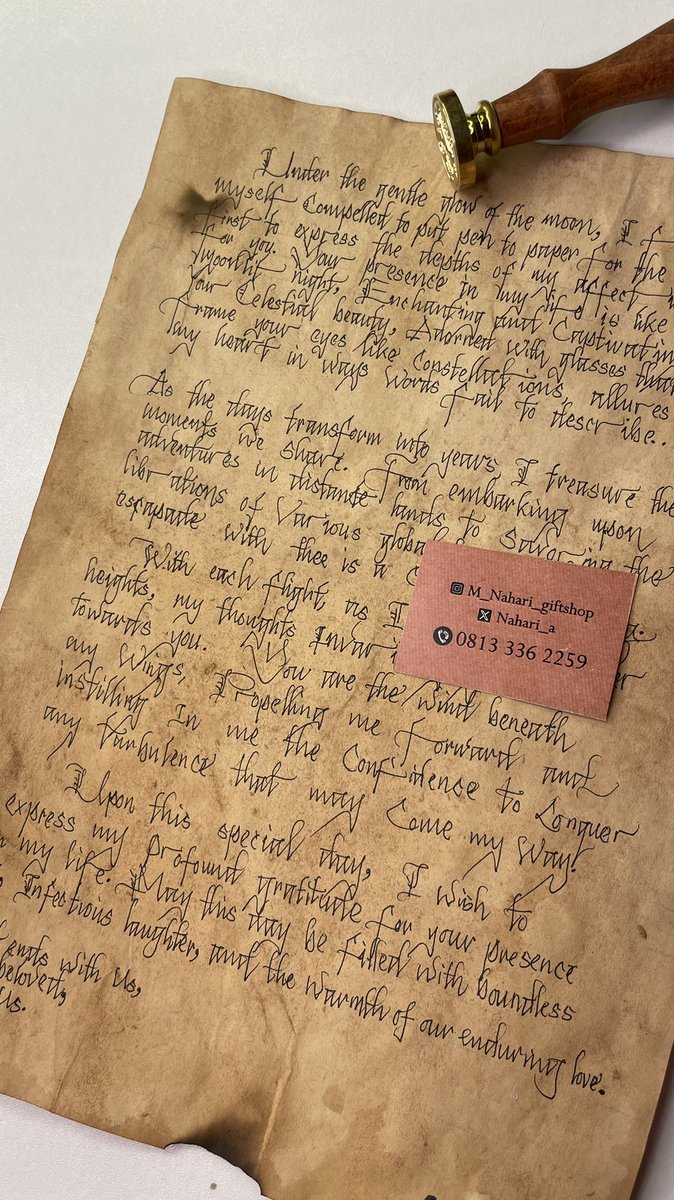 Under the gentle glow of the moon, I f
myself Compelled to put pen to paper for the
first to express the depths of my affect
for you. Your presence in my life is like
moonlit night, Enchanting and Captivatin
Your Celestial beauty, Adorned with glasses that
frame your eyes like Constellations, allures
my heart in ways words fail to describe..
As the days transform into years, I treasure the
moments we share. From embarking upon
adventures in distante lands to Savoring the
librations of Various global
escapade with thee is a
With each flight, as I
heights, my thoughts Invar
towards you. You are the wind beneath
my Wings, Propelling me forward and
instilling In me the Confidence to Conquer
any turbulence that may Come my Way!
Upon this special day, I wish to
express my profound gratitude for your presence
my life. May this day be filled with boundless
Infectious laughter, and the warmth of our enduring love.
ends with us,
beloved,
us.
M_Nahari_giftshop
Nahari_a
0813 336 2259